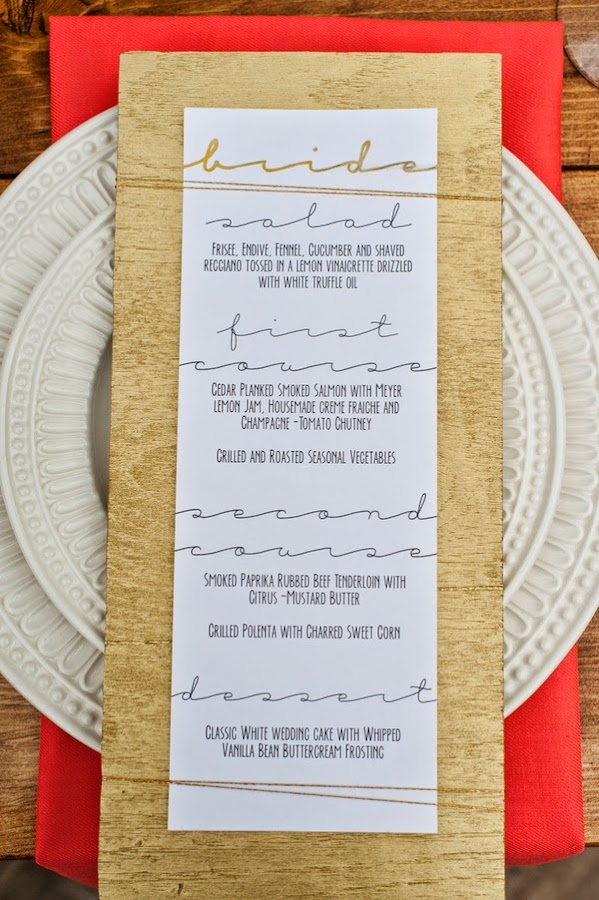 bride
salad
Frisee, Endive, Fennel, Cucumber and shaved
Reggiano tossed in a lemon vinaigrette drizzled
with white truffle oil
first
course
Cedar Planked Smoked Salmon with Meyer
Lemon Jam, Housemade creme fraiche and
Champagne -Tomato Chutney
Grilled and Roasted Seasonal Vegetables
second
course
Smoked Paprika Rubbed Beef Tenderloin with
Citrus -Mustard Butter
Grilled Polenta with Charred Sweet Corn
dessert
Classic White wedding cake with Whipped
Vanilla Bean Buttercream Frosting